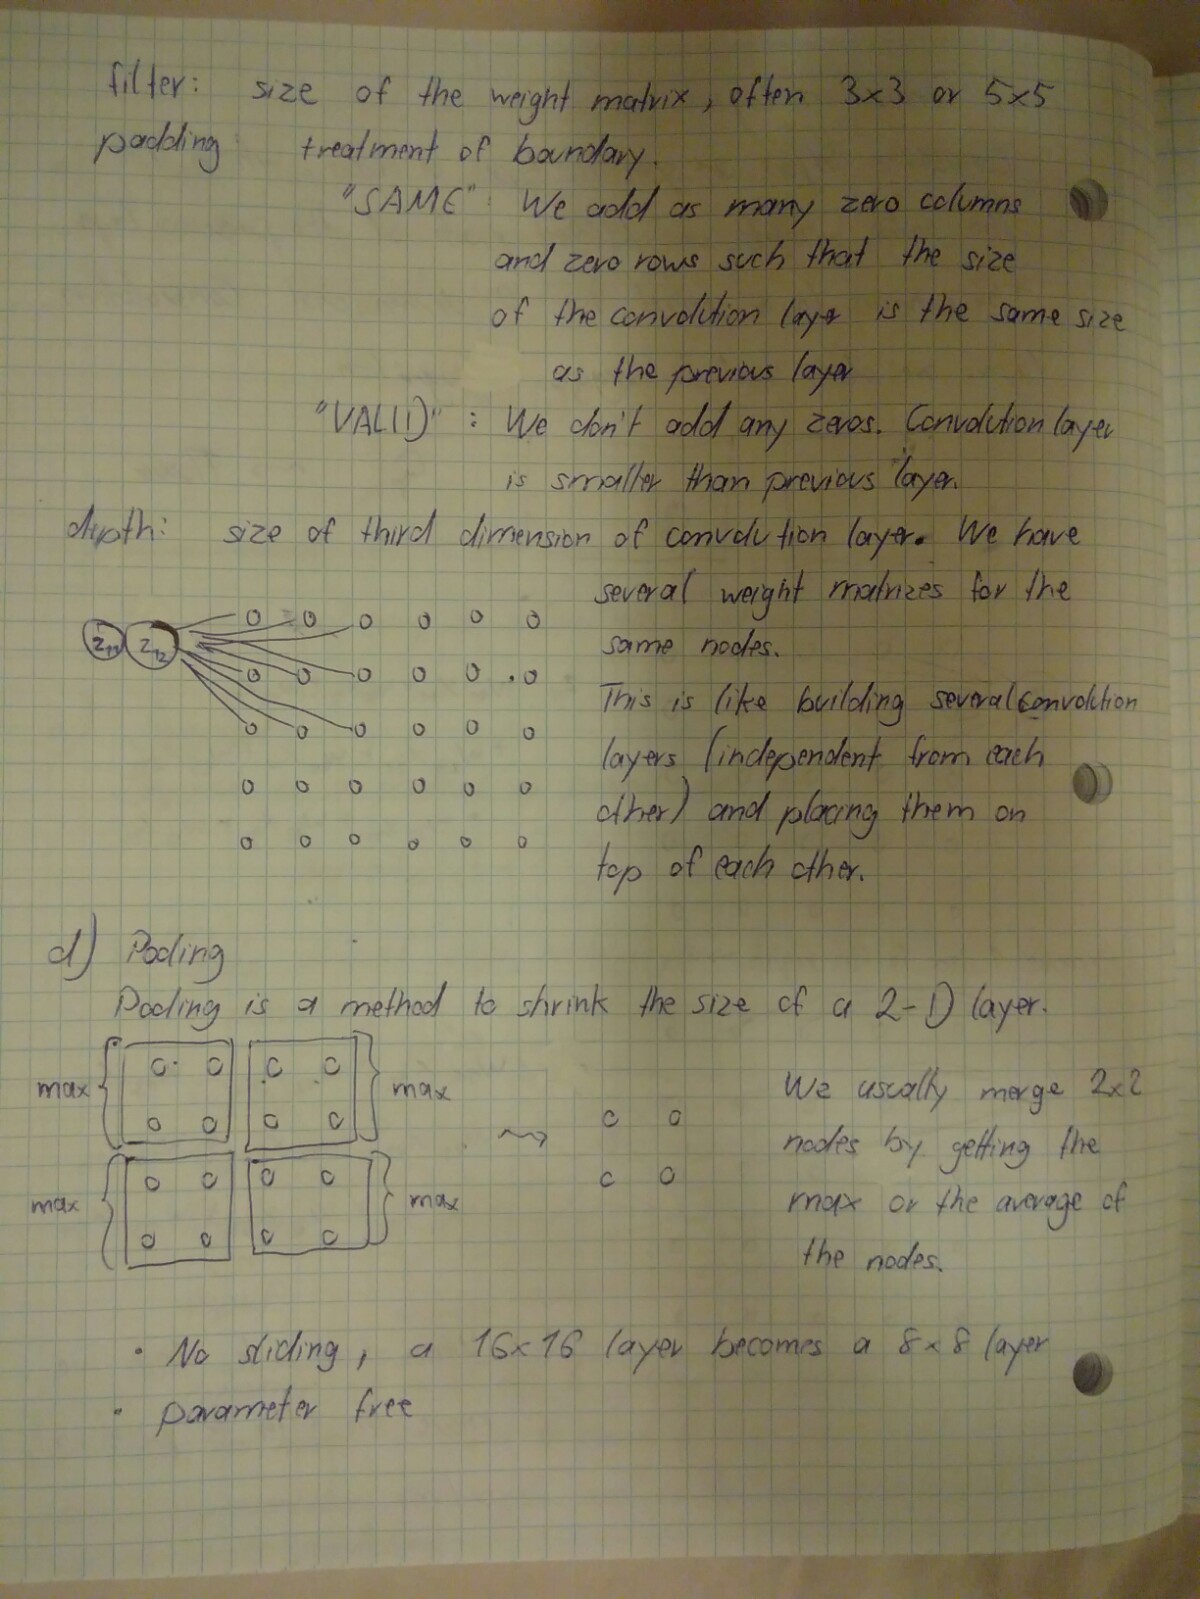 filter: size of the weight matrix, often 3x3 or 5x5
padding: treatment of boundary.
"SAME": We add as many zero columns
and zero rows such that the size
of the convolution layer is the same size
as the previous layer
"VALID": We don't add any zeros. Convolution layer
is smaller than previous layer.
depth: size of third dimension of convolution layer. We have
several weight matrizes for the
same nodes.
This is like building several convolution
layers (independent from each
other) and placing them on
top of each other.
d) Pooling
Pooling is a method to shrink the size of a 2-D layer.
max max
max max
We usually merge 2x2
nodes by getting the
max or the average of
the nodes.
• No sliding, a 16x16 layer becomes a 8x8 layer
• parameter free